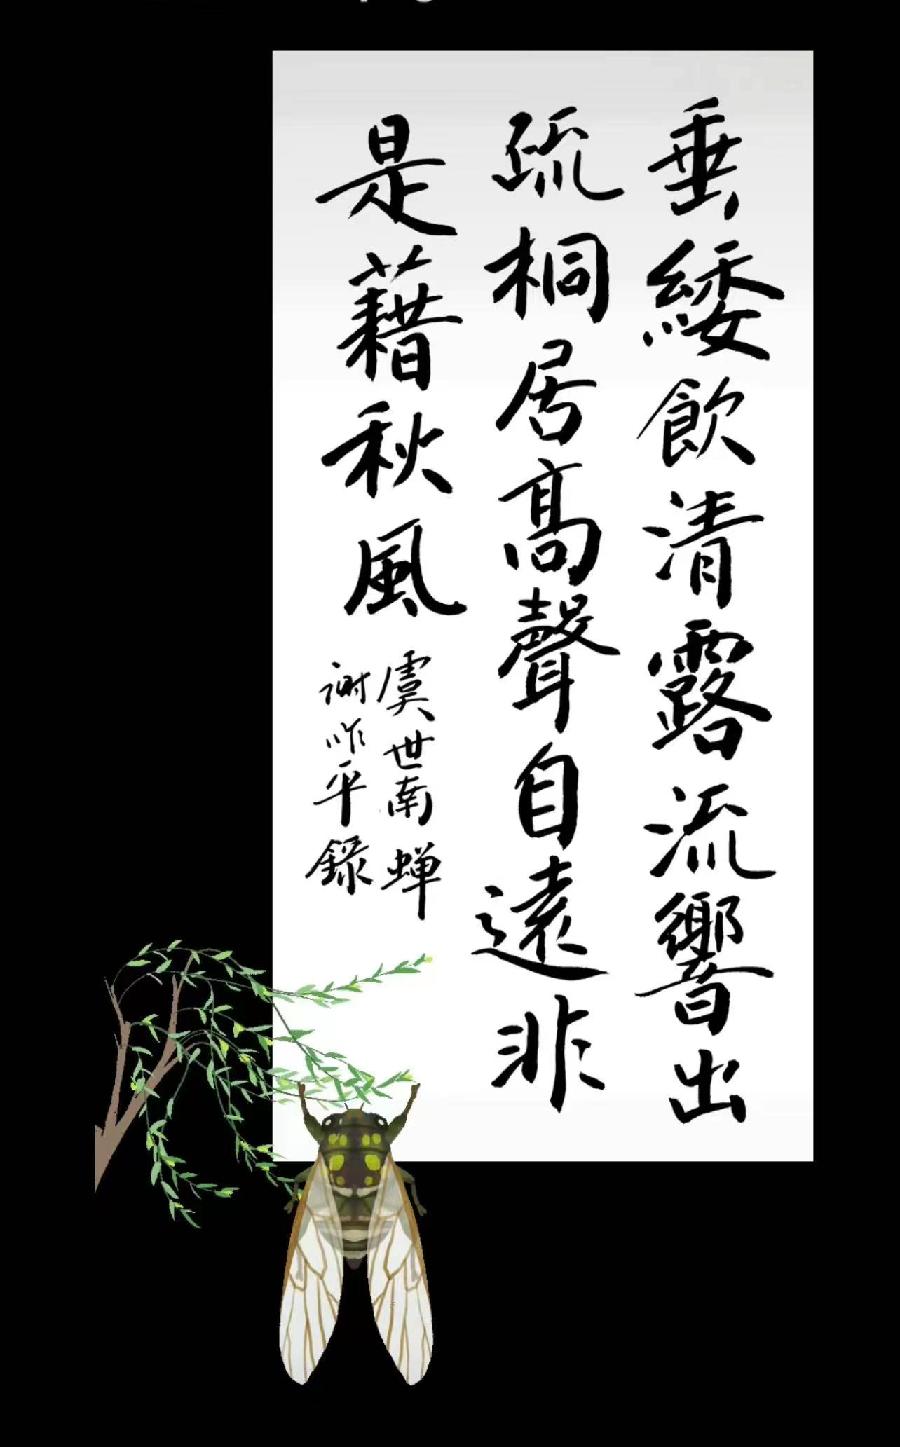 垂緌飲清露流響出
疏桐居高聲自遠非
是藉秋風
虞世南蝉
謝咋平錄